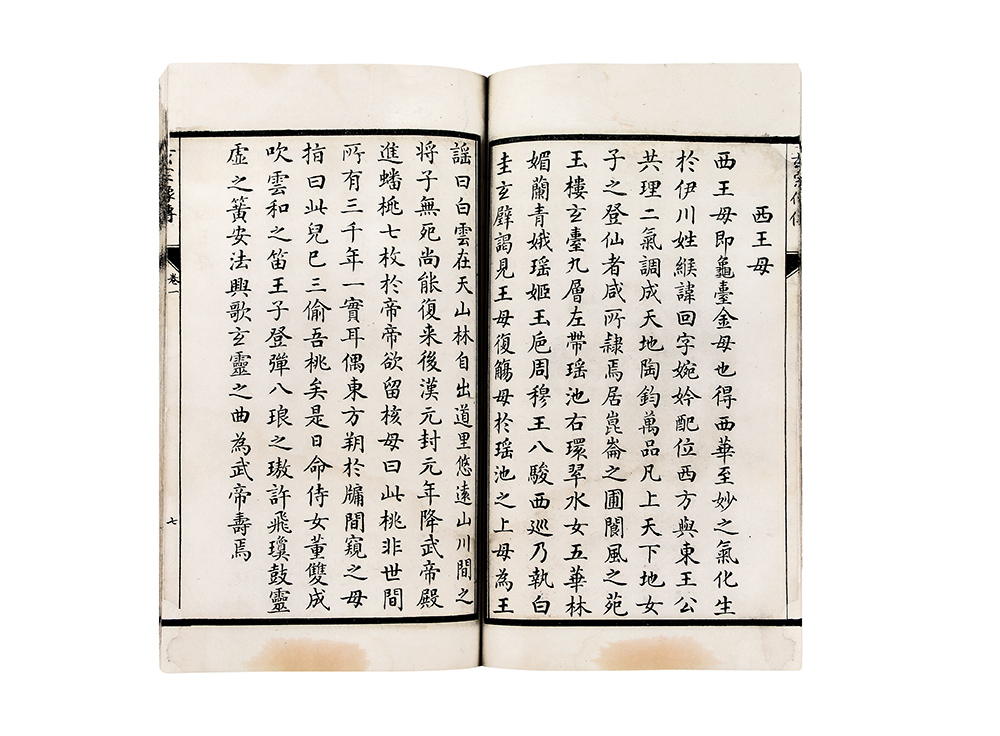 西王母
西王母即龜臺金母也得西華至妙之氣化生
於伊川姓緱諱回字婉妗配位西方與東王公
共理二氣調成天地陶鈞萬品凡上天下地女
子之登仙者咸所隸焉居崑崙之圃閬風之苑
玉樓玄臺九層左帶瑶池右環翠水女五華林
媚蘭青娥瑶姬玉巵周穆王八駿西巡乃執白
圭玄璧謁見王母復觴母於瑶池之上母為王
謡曰白雲在天山林自出道里悠遠山川間之
將子無死尚能復来後漢元封元年降武帝殿
進蟠桃七枚於帝帝欲留核母曰此桃非世間
所有三千年一實耳偶東方朔於牖間窺之母
指曰此兒巳三偷吾桃矣是日命侍女董雙成
吹雲和之笛王子登彈八琅之璈許飛瓊鼓靈
虛之簧安法興歌玄靈之曲為武帝壽焉
卷一
七